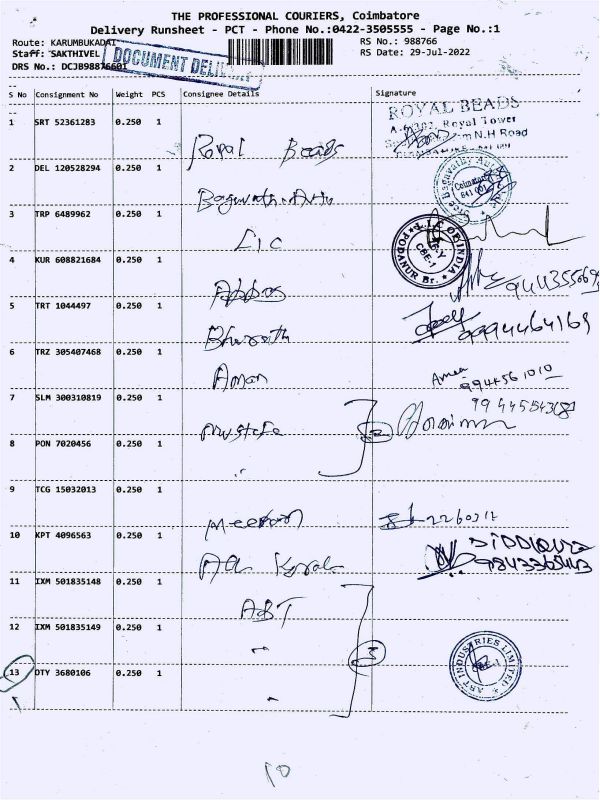 THE PROFESSIONAL COURIERS, Coimbatore
Delivery Runsheet - PCT - Phone No.:0422-3505555 - Page No.:1
Route: KARUMBUKADAI RS No.: 988766
Staff: SAKTHIVEL RS Date: 29-Jul-2022
DRS No.: DCJB98876601
DOCUMENT
S No Consignment No Weight PCS Consignee Details Signature
ROYAL BEADS
Royal Tower
N.H Road
1 SRT 52361283 0.250 1 Royal Beads
2 DEL 120528294 0.250 1
Coimbatore
641 001
3 TRP 6489962 0.250 1 LIC
L.I.C OF INDIA
CBE-1
PODANUR Br.
4 KUR 608821684 0.250 1 Abbas
5 TRT 1044497 0.250 1 Bharath 9994464169
6 TRZ 305407468 0.250 1 Aman
994456 1010
7 SLM 300310819 0.250 1 Mustafa 2
8 PON 7020456 0.250 1 "
9 TCG 15032013 0.250 1 Meeran
10 KPT 4096563 0.250 1
11 IXM 501835148 0.250 1 ABT
12 IXM 501835149 0.250 1 " 3
INDUSTRIES LIMITED
13 OTY 3680106 0.250 1 "
10